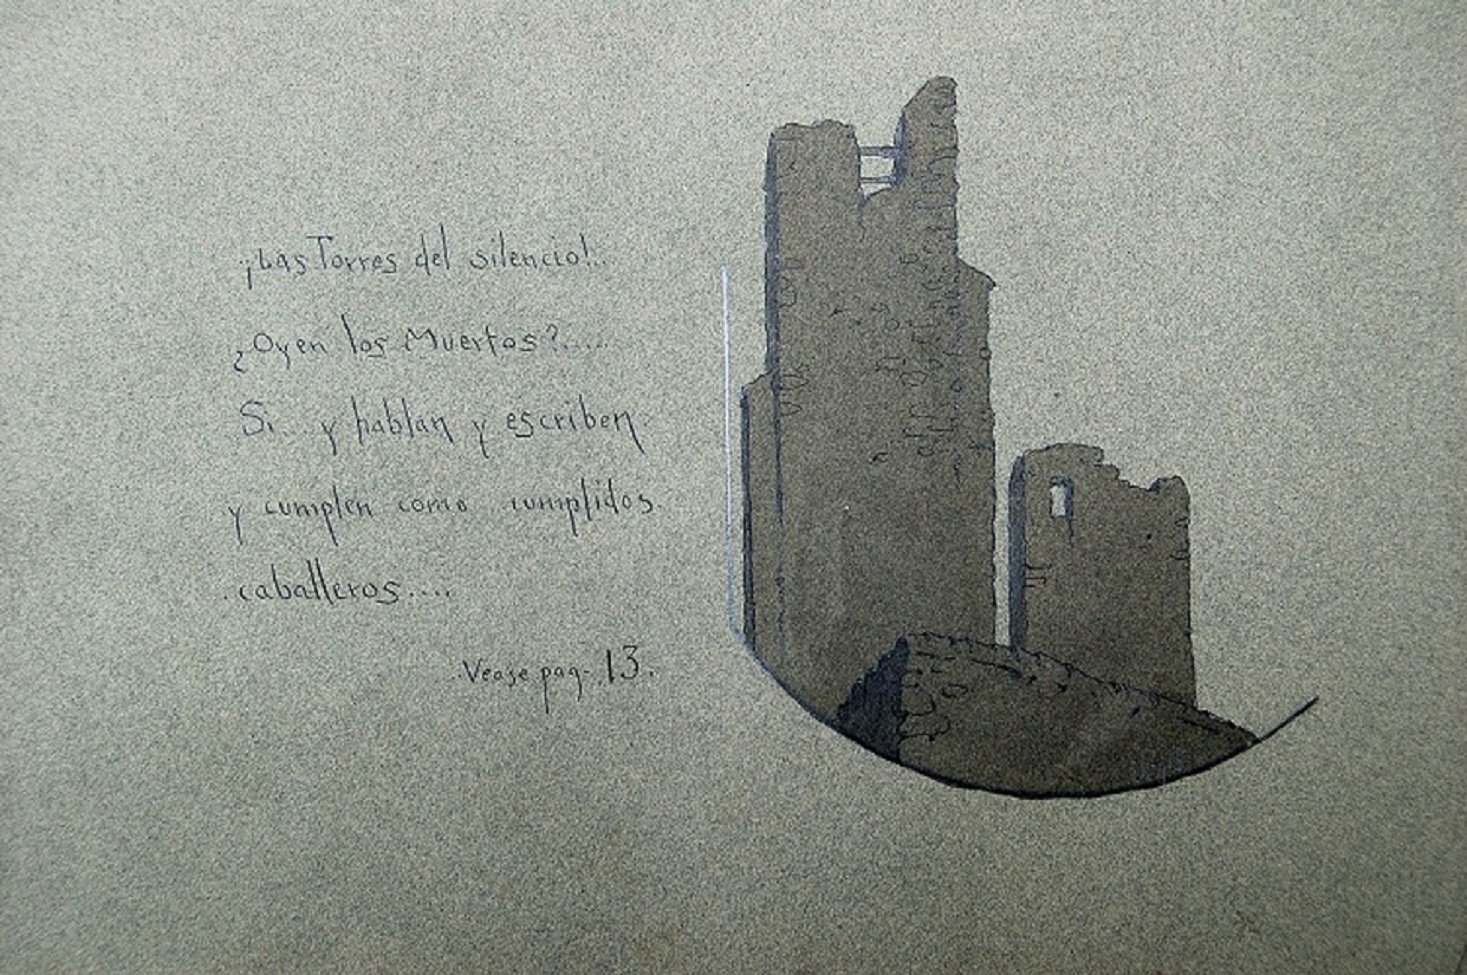 ¡Las Torres del silencio!..
¿Oyen los Muertos?.....
Si... y hablan y escriben
y cumplen como cumplidos
caballeros....
Vease pag. 13.